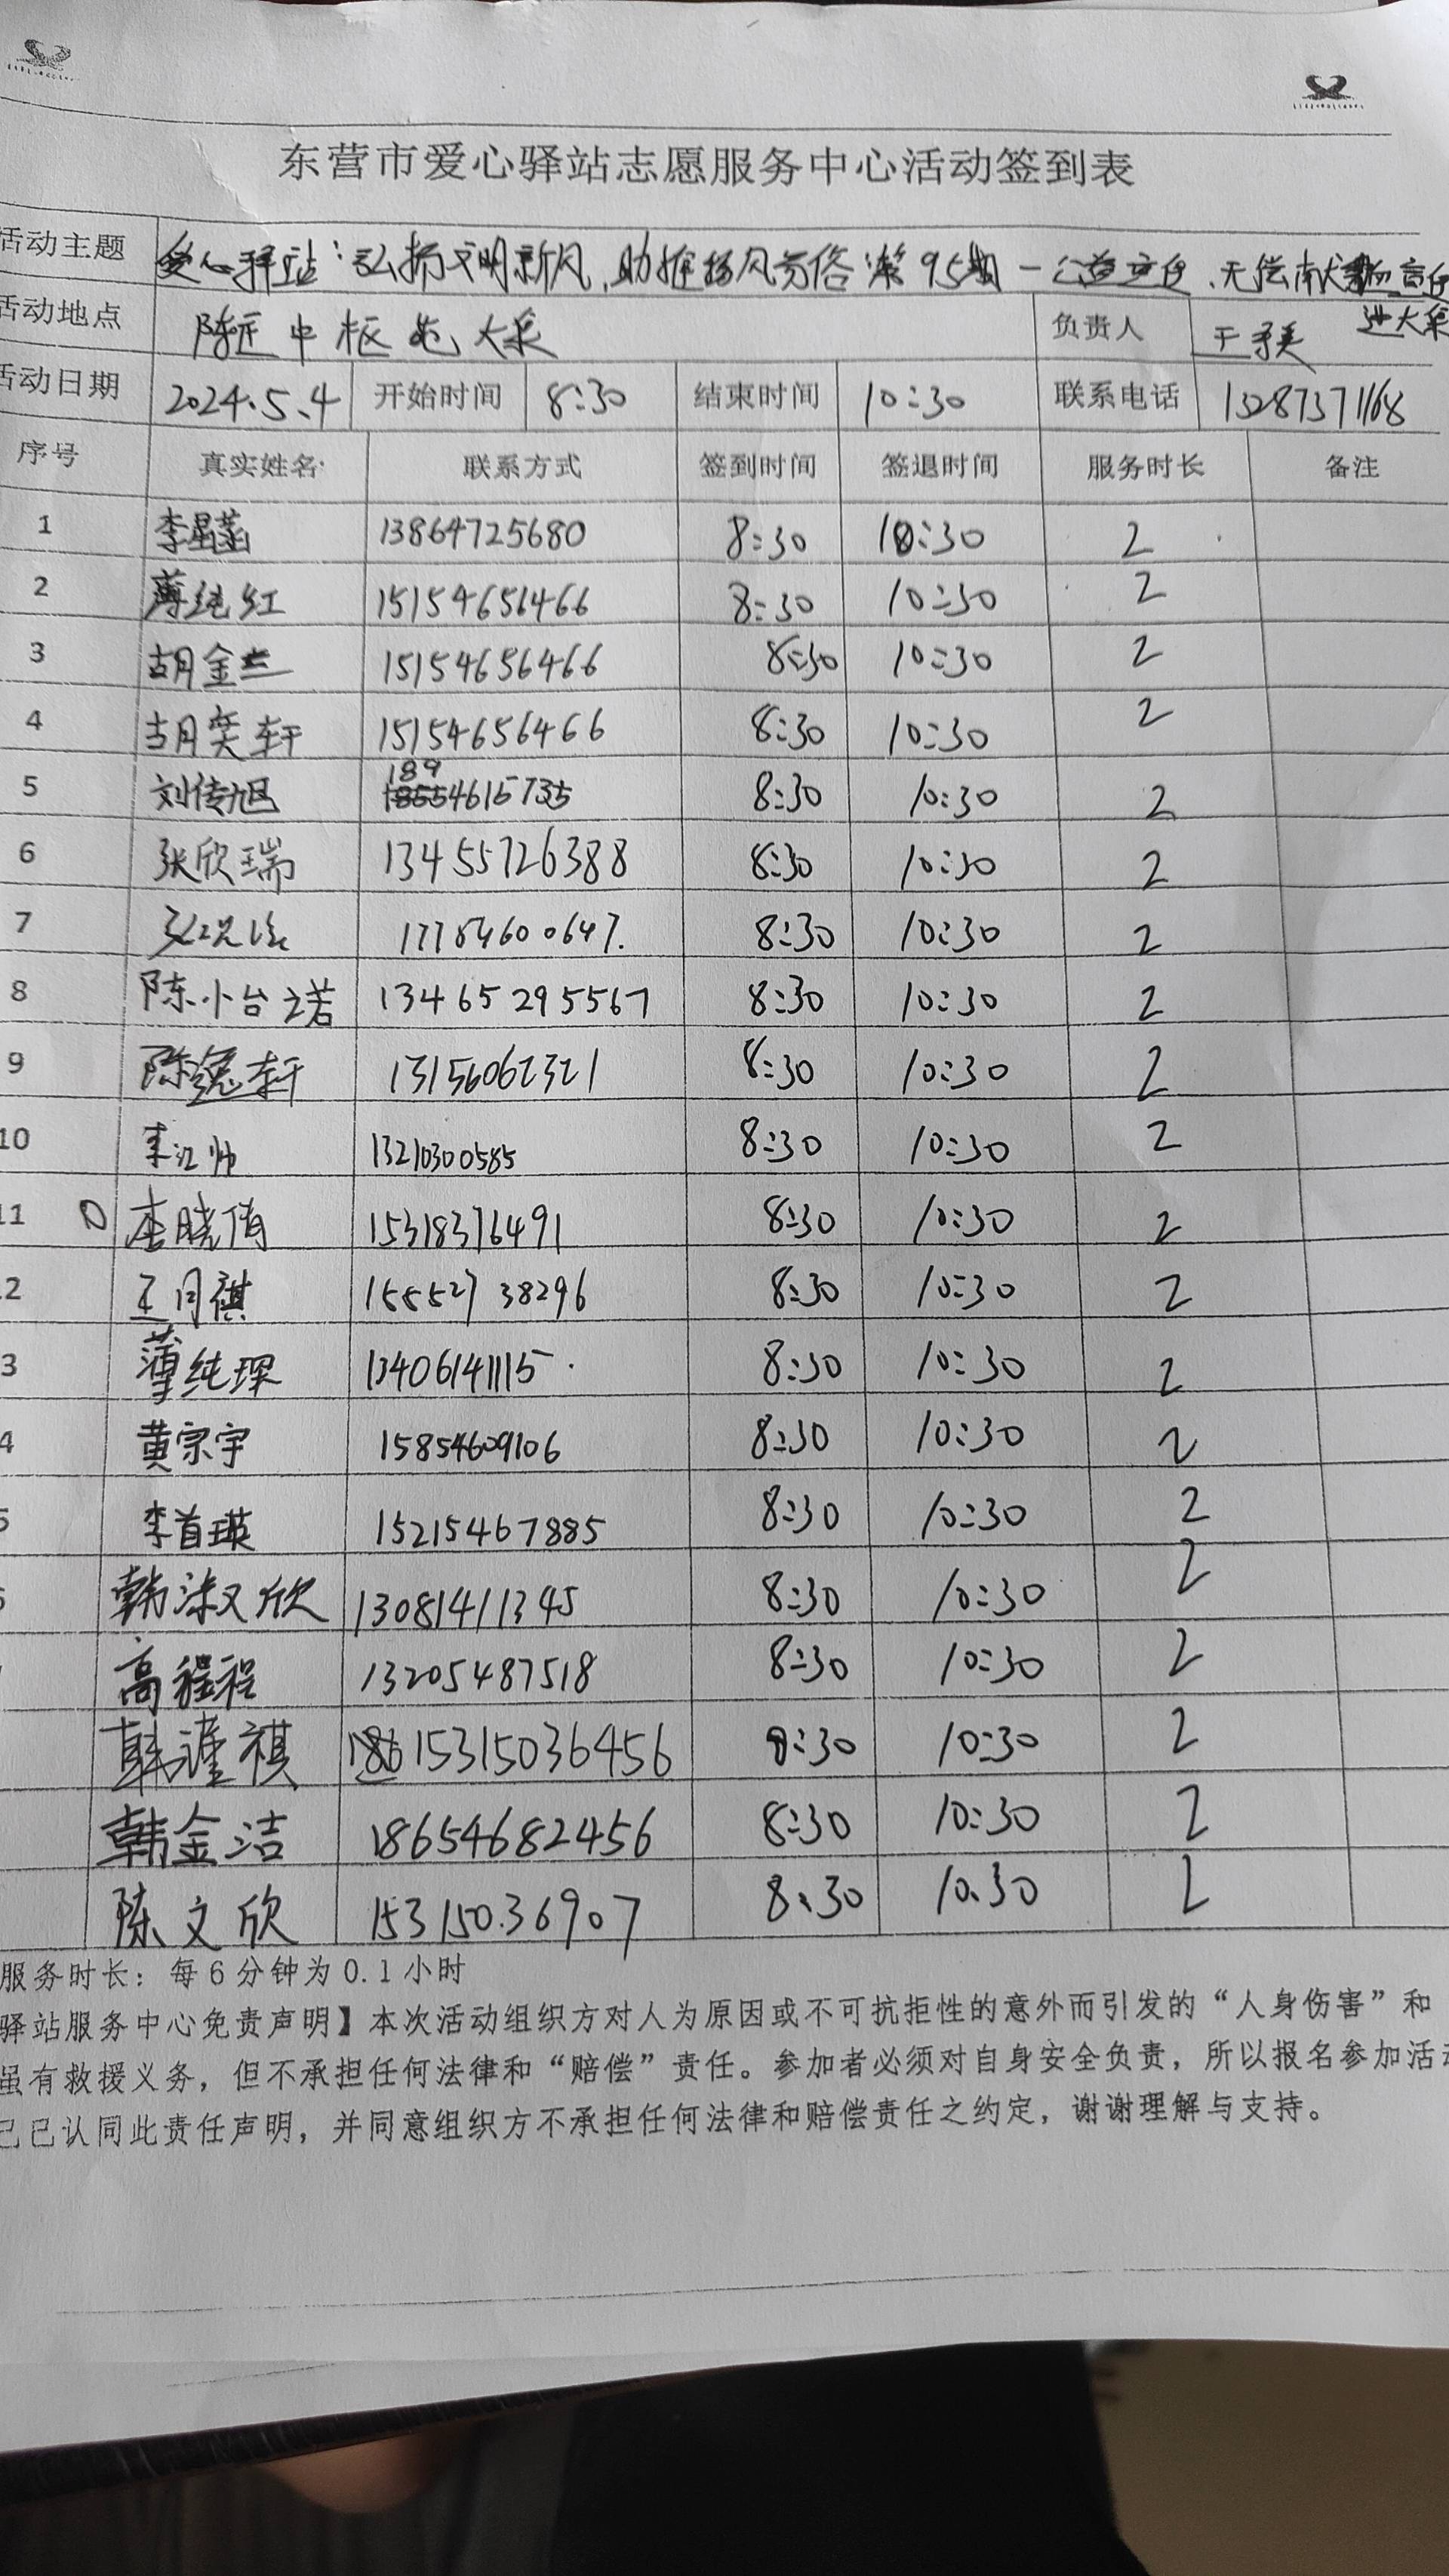 东营市爱心驿站志愿服务中心活动签到表
活动主题 爱心驿站:弘扬文明新风、助推移风易俗 第95期
活动地点 大集 负责人 进大集
活动日期 2024.5.4 开始时间 8:30 结束时间 10:30 联系电话 13287371168
序号 真实姓名 联系方式 签到时间 签退时间 服务时长 备注
1 李星菡 13864725680 8:30 10:30 2
2 薄纯红 15154651466 8:30 10:30 2
3 胡金兰 15154656466 8:30 10:30 2
4 胡奕轩 15154656466 8:30 10:30 2
5 刘传旭 18954615735 8:30 10:30 2
6 张欣瑞 13455726388 8:30 10:30 2
7 17784600647. 8:30 10:30 2
8 陈小台之若 13465295567 8:30 10:30 2
9 陈逸轩 13156062321 8:30 10:30 2
10 13210300585 8:30 10:30 2
11 李晓倩 15318376491 8:30 10:30 2
2 王同祺 15552738296 8:30 10:30 2
3 薄纯琛 13406141115 8:30 10:30 2
4 黄宗宇 15854609106 8:30 10:30 2
5 李首瑛 15215467885 8:30 10:30 2
韩淑欣 13081411345 8:30 10:30 2
高程程 13205487518 8:30 10:30 2
韩潼祺 15315036456 8:30 10:30 2
韩金洁 18654682456 8:30 10:30 2
陈文欣 15315036907 8:30 10.30 2
服务时长:每6分钟为0.1小时
驿站服务中心免责声明】本次活动组织方对人为原因或不可抗拒性的意外而引发的“人身伤害”和
虽有救援义务,但不承担任何法律和“赔偿”责任。参加者必须对自身安全负责,所以报名参加活动
己已认同此责任声明,并同意组织方不承担任何法律和赔偿责任之约定,谢谢理解与支持。